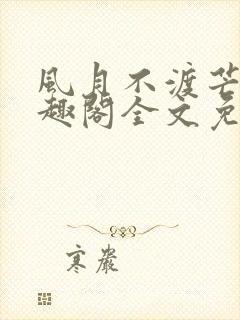 風月不渡芒
趣閣全文免
寒巖